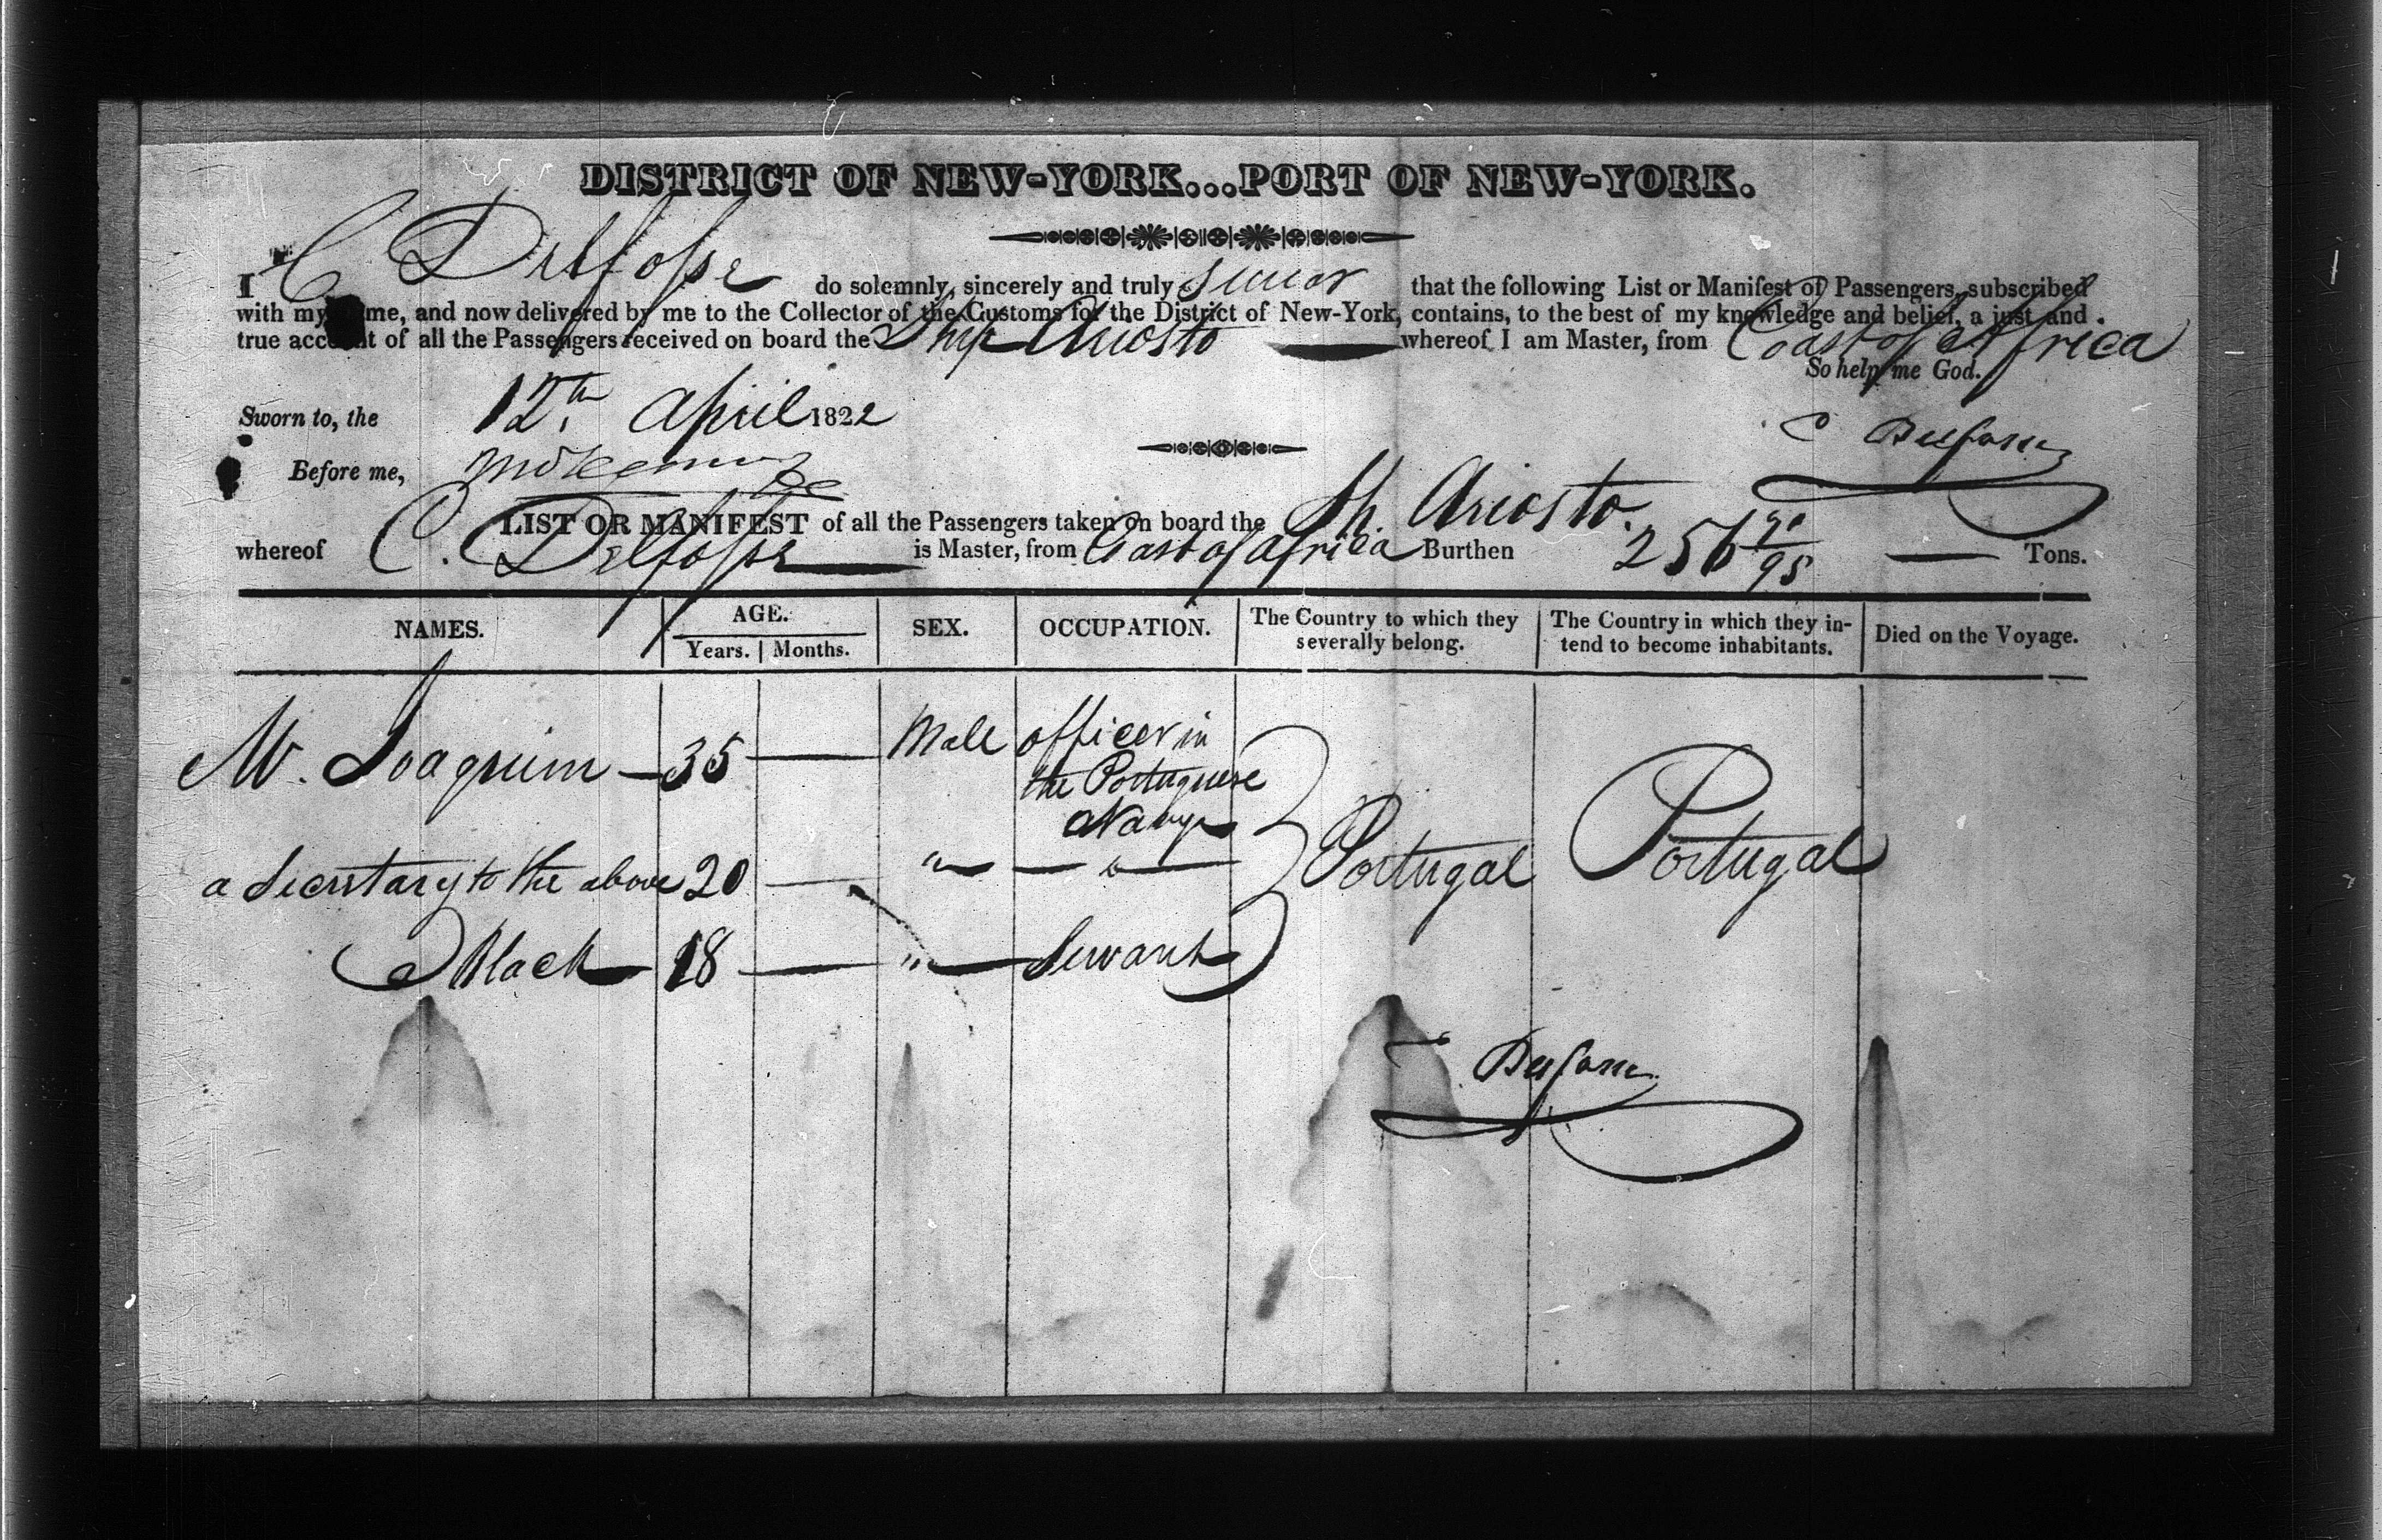 DISTRICT OF NEW-YORK...PORT OF NEW-YORK.
I C Delfosse do solemnly, sincerely and truly swear that the following List or Manifest of Passengers, subscribed
with my me, and now delivered by me to the Collector of the Customs for the District of New-York, contains, to the best of my knowledge and belief, a just and
true account of all the Passengers received on board the Ship Ariosto whereof I am Master, from Coast of Africa
So help me God.
Sworn to, the 12th. April 1822
C Delfosse
Before me,
LIST OR MANIFEST of all the Passengers taken on board the Sh. Ariosto.
whereof C. Delfosse is Master, from Coast of Africa Burthen 256 90/95 Tons.
NAMES. AGE. Years. Months. SEX. OCCUPATION. The Country to which they severally belong. The Country in which they intend to become inhabitants. Died on the Voyage.
M. Joaquim — 35 — Male officer in
the Portuguese
Navy
a Secretary to the above 20 — " — " — Portugal Portugal
a Black — 18 — " — Servant
C Delfosse